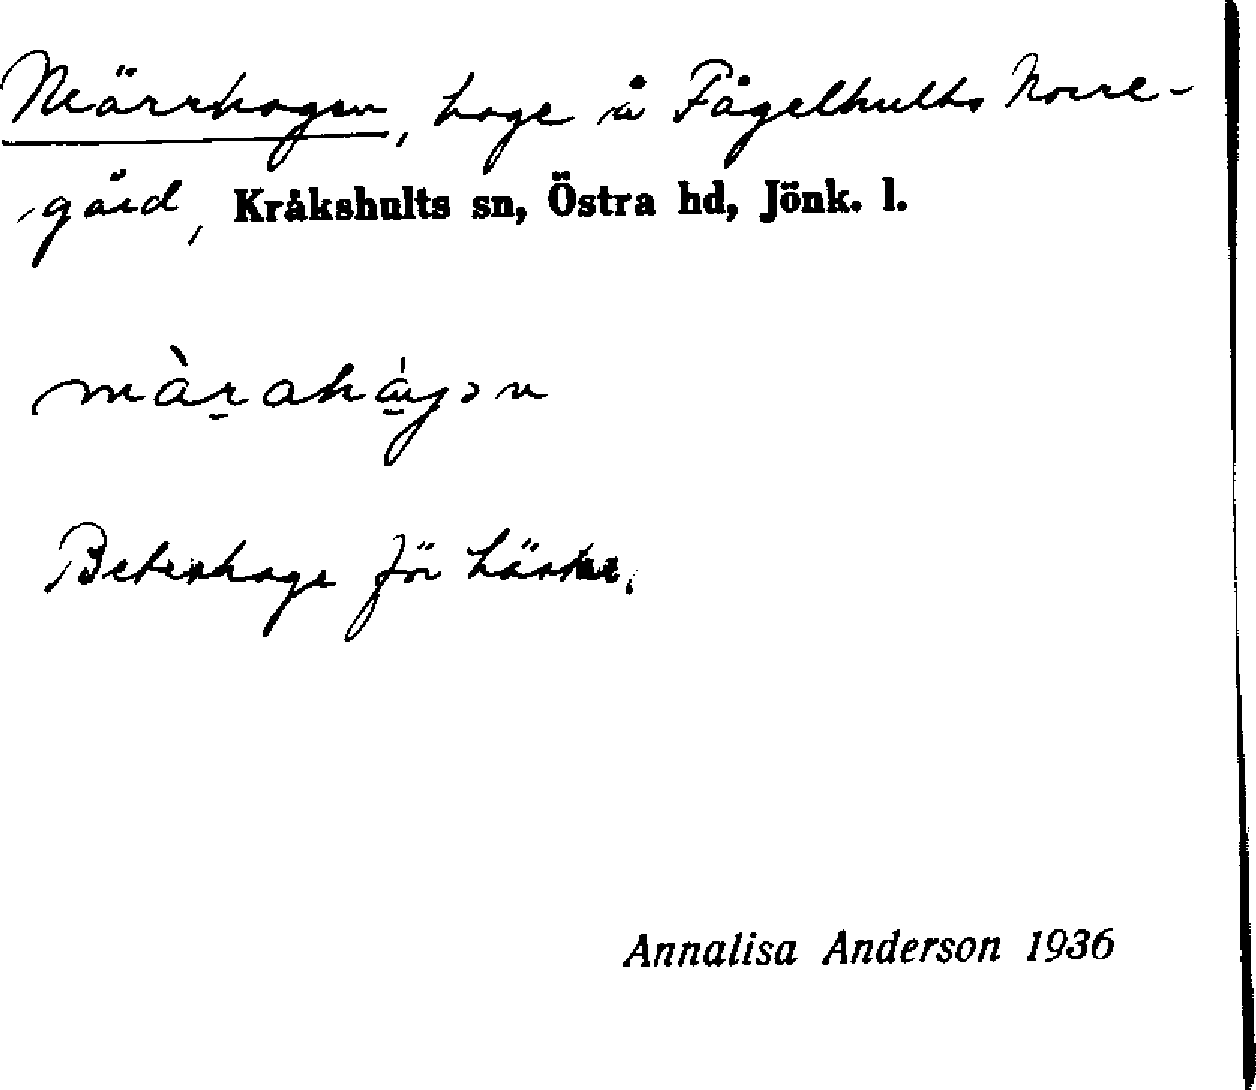 Märrhagen, hage å Fågelhults Norre-
gård, Kråkshults sn, Östra hd, Jönk. l.
Beteshage för hästar.
Annalisa Anderson 1936